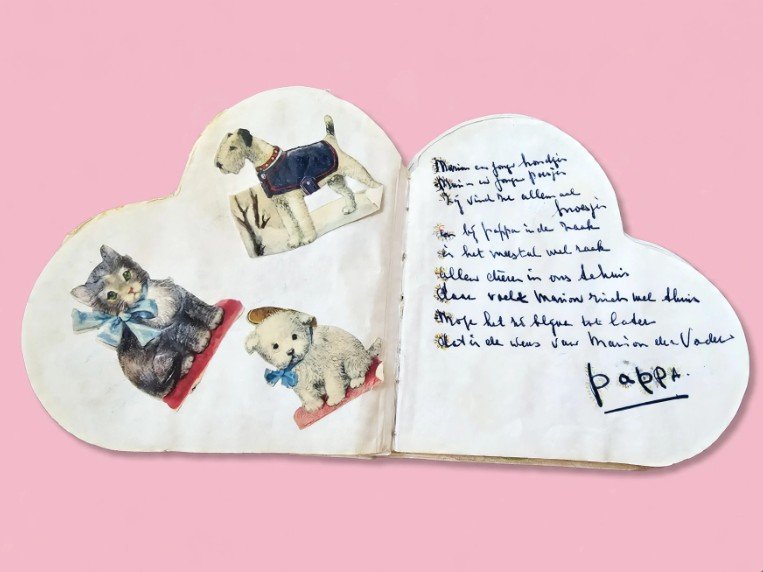 Marion en jonge hondjes
Marion en jonge poesjes
Zij vindt ze allemaal
snoesjes
En bij pappa in de zaak
is het meestal wel raak
Alleen dieren in ons tehuis
daar voelt Marion zich wel thuis
Moge het zo blijven tot later
dat is de wens van Marion der Vader
pappa.